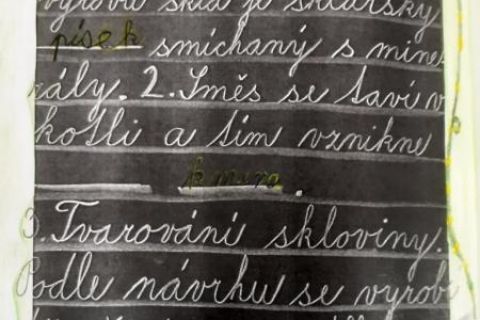 výrobu skla je sklářský
písek smíchaný s mine
rály. 2. Směs se taví v
kotli a tím vznikne
kmeno.
3. Tvarování skloviny.
Podle návrhu se vyrobí